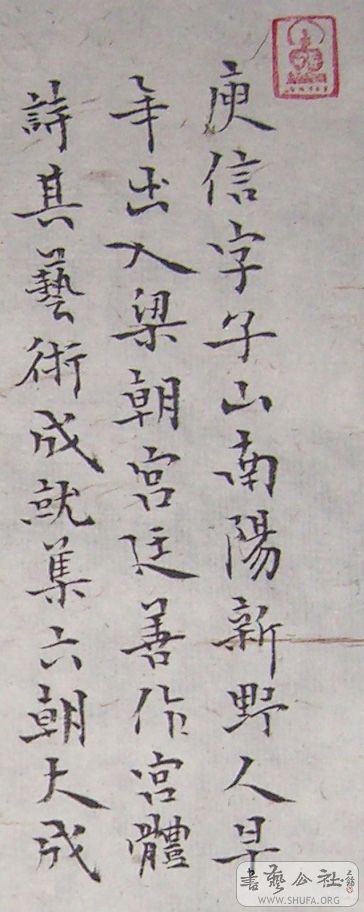 庾信字子山南陽新野人早
年出入梁朝宮廷善作宮體
詩其藝術成就集六朝大成
書藝公社
WWW.SHUFA.ORG